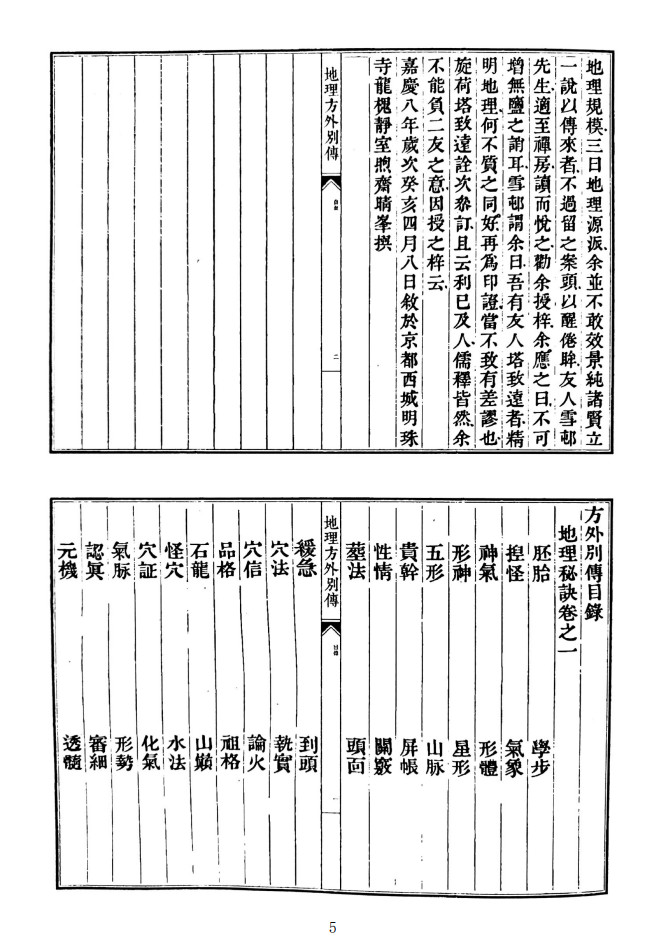 地理規模三曰地理源派余並不敢效景純諸賢立
一說以傳來者不過留之案頭以醒倦眸友人雪邨
先生適至禪房讀而悅之勸余授梓余應之曰不可
增無鹽之誚耳雪邨謂余曰吾有友人塔致遠者精
明地理何不質之同好再為印證當不致有差謬也
旋荷塔致達詮次叅訂且云利已及人儒釋皆然余
不能負二友之意因授之梓云
嘉慶八年歲次癸亥四月八日敘於京都西城明珠
寺龍槐靜室煦齋晴峯撰
地理方外別傳
二
方外別傳目錄
地理秘訣卷之一
胚胎 學步
揑怪 氣象
神氣 形體
形神 星形
五形 山脉
貴幹 屏帳
性情 關竅
塟法 頭面
地理方外別傳
目錄
一
緩急 到頭
穴法 執實
穴信 論火
品格 祖格
石龍 山巔
怪穴 水法
穴証 化氣
氣脉 形勢
認真 審細
元機 透髓
5